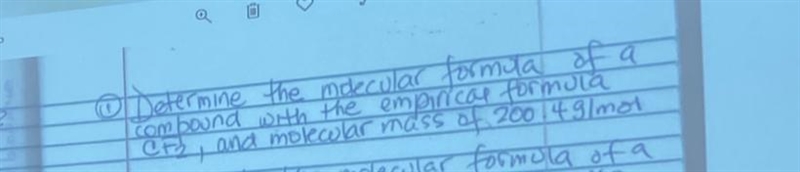 ① Determine the molecular formula of a
compound with the empirical formula
CF2, and molecular mass of 200.4g/mol
molecular formula of a